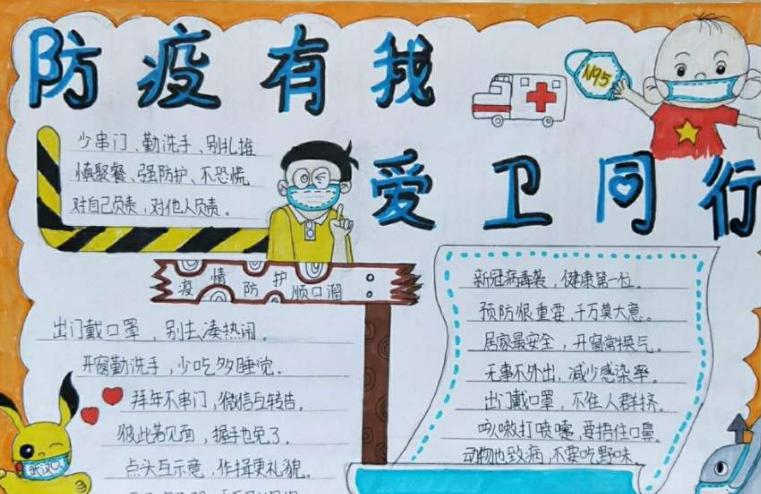 防疫有我
N95
爱卫同行
少串门、勤洗手、别扎堆
慎聚餐、强防护、不恐慌
对自己负责，对他人负责。
疫情防护顺口溜
出门戴口罩，别去凑热闹。
开窗勤洗手，少吃多睡觉。
拜年不串门，微信互转告。
彼此若见面，握手也免了。
点头互示意，作揖更礼貌。
武汉
新冠病毒袭，健康第一位。
预防很重要，千万莫大意。
居家最安全，开窗常换气。
无事不外出，减少感染率。
出门戴口罩，不往人群挤。
咳嗽打喷嚏，要捂住口鼻。
动物也致病，不要吃野味